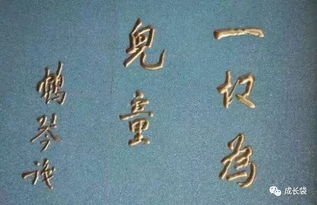 一切為
兒童
鶴琴識
成长袋